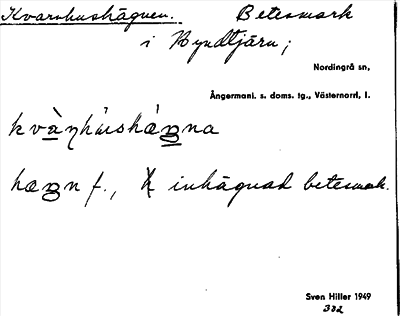 Kvarnhushägnen. Betesmark
i Ryndtjärn;
Nordingrå sn,
Ångermanl. s. doms. tg., Västernorrl. l.
f., inhägnad betesmark.
Sven Hiller 1949
332